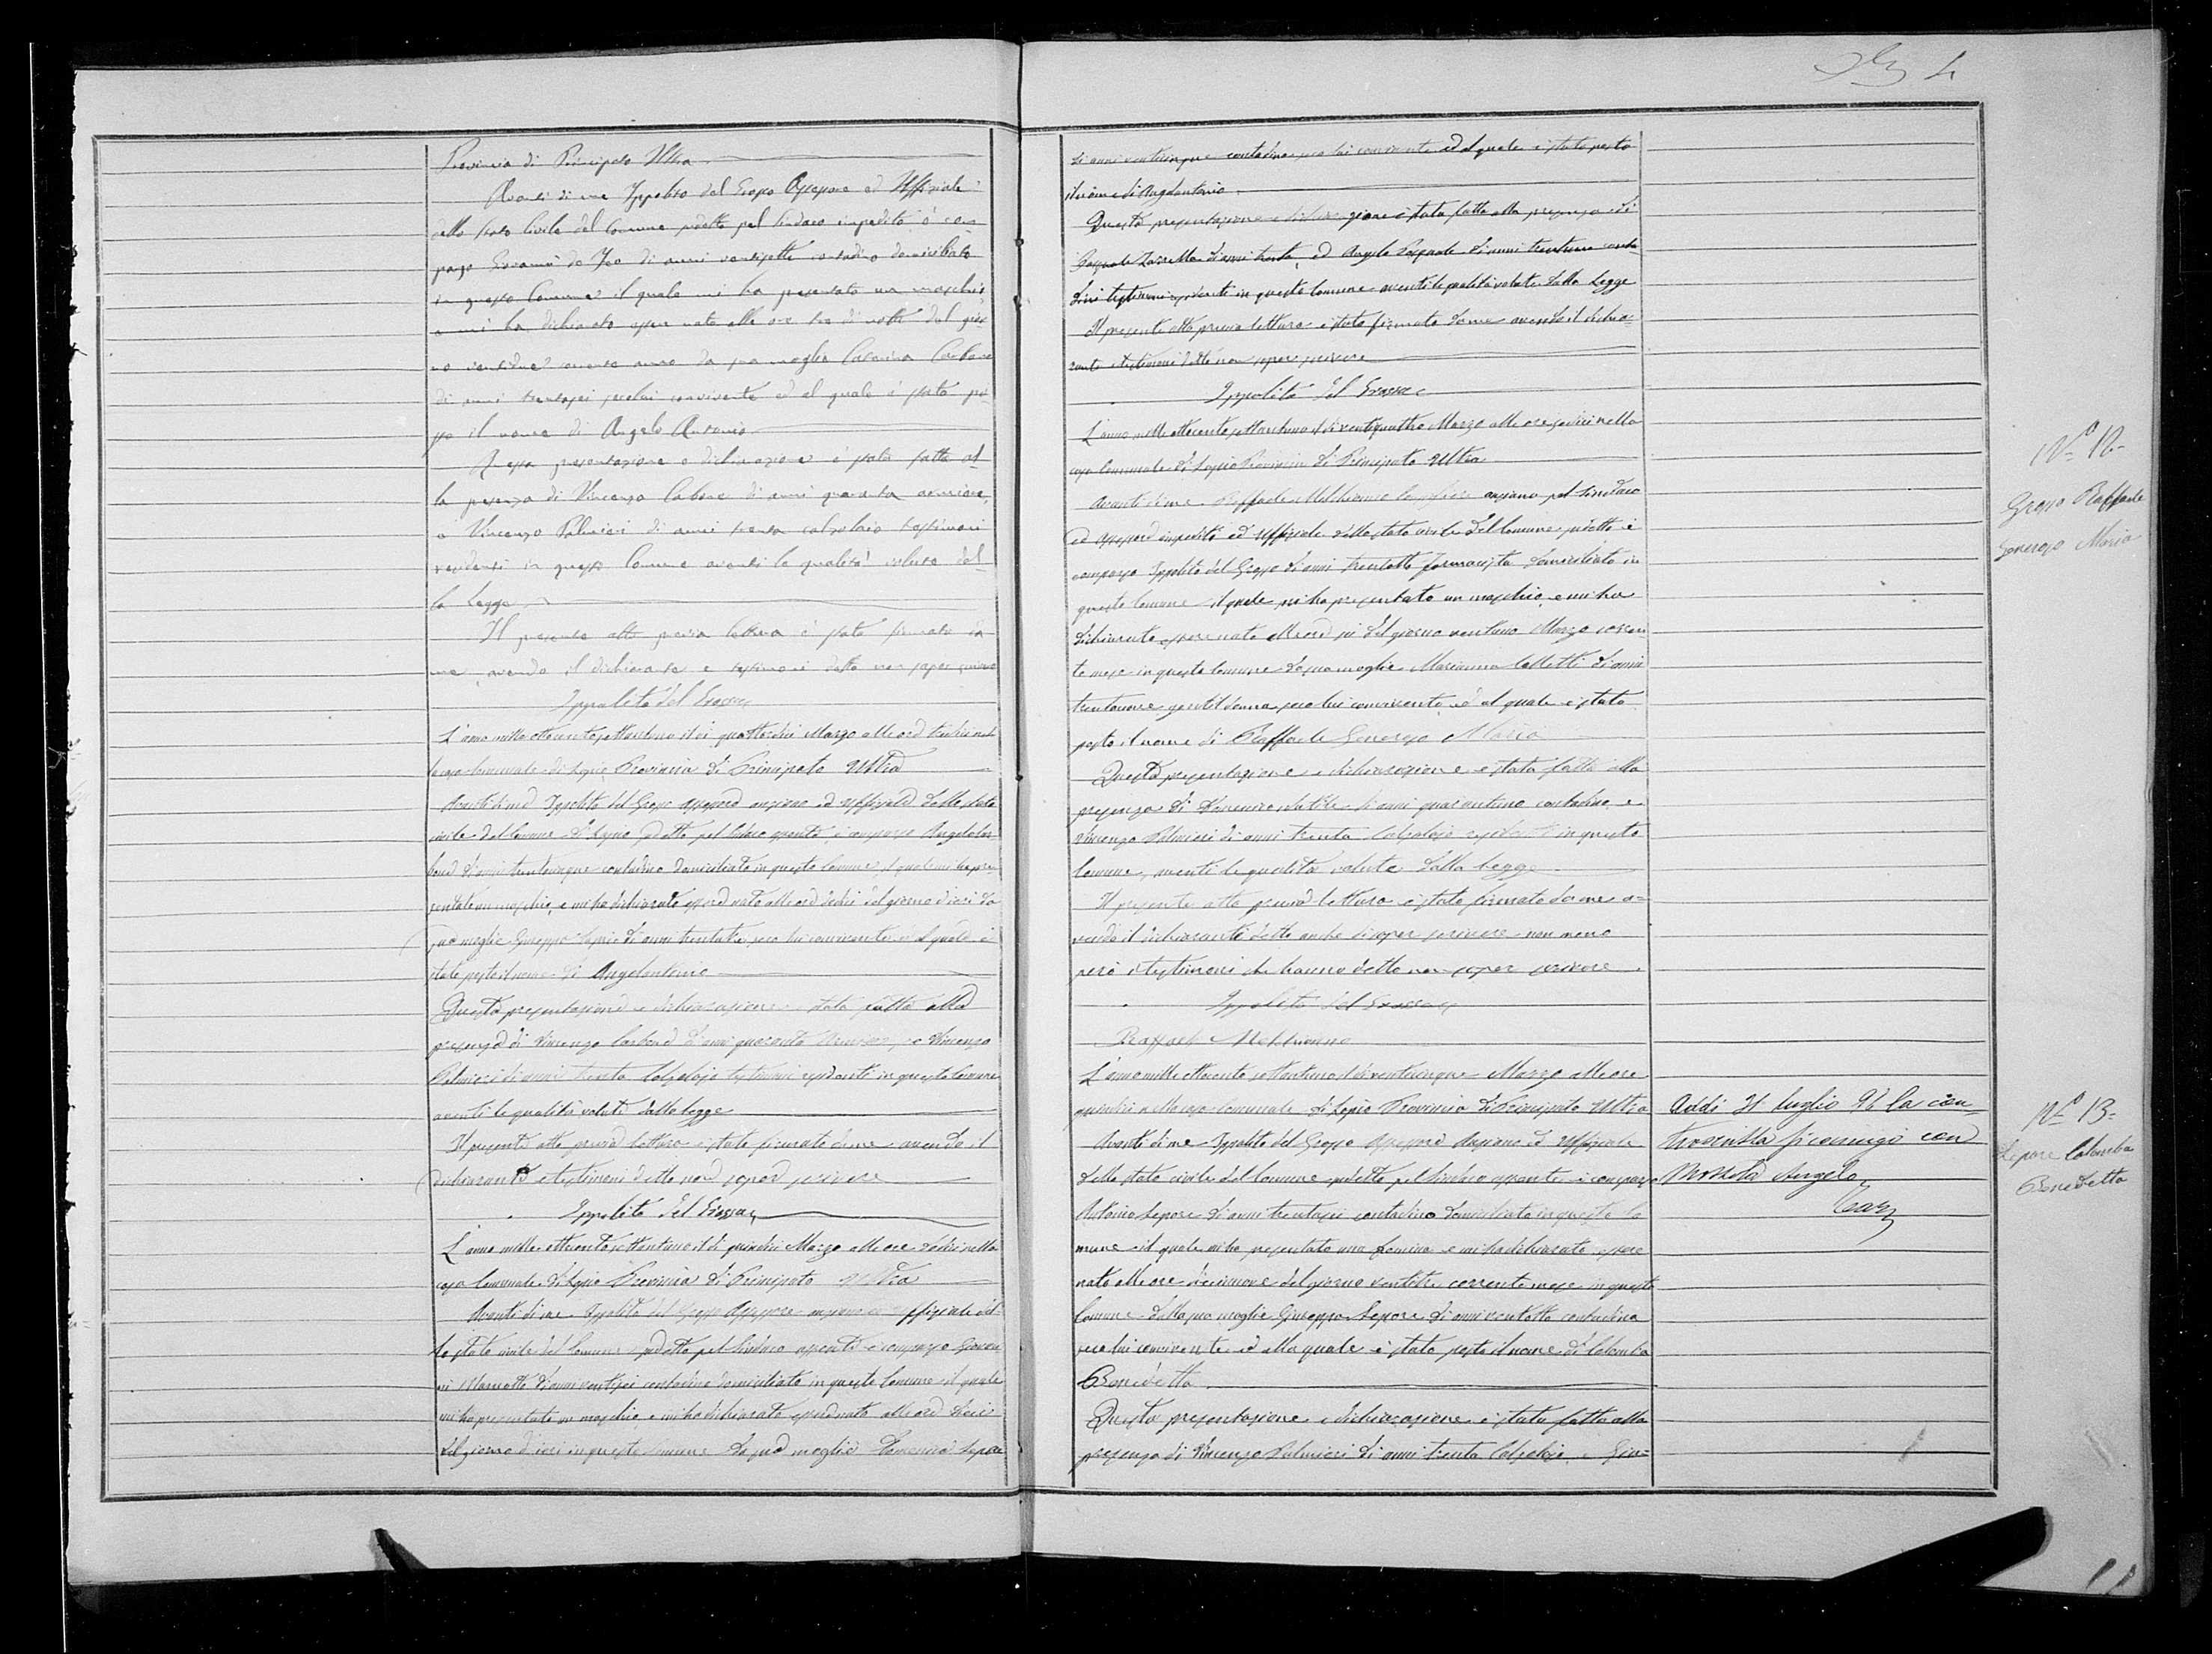 Provincia di Principato Ultra
Avanti di me Ippolito del Grosso Assessore ed Uffiziale
dello stato Civile del Comune sudetto pel Sindaco impedito è com
parso Giovanni de Feo di anni ventisette contadino domiciliato
in questo Comune il quale mi ha presentato un maschio
e mi ha dichiarato esser nato alle ore tre di notte del gior
no ventidue corrente anno da sua moglie Carbone
di anni ventisei secolui convivente ed al quale è stato po
sto il nome di Angelo Antonio
Questa presentazione e dichiarazione è stata fatta al
la presenza di Vincenzo Carbone di anni quaranta
e Vincenzo Palmieri di anni trenta calzolaio testimoni
residenti in questo Comune aventi le qualità volute dal
la Legge
Il presente atto previa lettura è stato firmato da
me, avendo il dichiarante e testimoni detto non saper scrivere
Ippolito del Grosso
L'anno mille ottocento settantuno il dì quattordici Marzo alle ore tredici nel
la casa Comunale di Lapio Provincia di Principato Ultra
Avanti di me Ippolito del Grosso Assessore anziano ed Uffiziale dello stato
civile del Comune di Lapio sudetto pel Sindaco assente, è comparso Angelo Car
bone di anni trentacinque contadino domiciliato in questo Comune, il quale mi ha pre
sentato un maschio, e mi ha dichiarato essere nato alle ore dodici del giorno dieci da
sua moglie Giuseppa Lapio di anni trentatre seco lui convivente ed al quale è
stato posto il nome di Angelantonio
Questa presentazione e dichiarazione è stata fatta alla
presenza di Vincenzo Carbone di anni quaranta, e Vincenzo
Palmieri di anni trenta Calzolajo testimoni residenti in questo Comune
aventi le qualità volute dalla legge
Il presente atto previa lettura è stato firmato da me avendo il
dichiarante e testimoni detto non saper scrivere
Ippolito del Grosso
L'anno mille ottocento settantuno il dì quindici Marzo alle ore dodici nella
casa Comunale di Lapio Provincia di Principato Ultra
Avanti di me Ippolito del Grosso Assessore anziano ed uffiziale del
lo stato civile del Comune sudetto pel Sindaco assente è comparso Giovan
ni di anni ventisei contadino domiciliato in questo Comune il quale
mi ha presentato un maschio e mi ha dichiarato essere nato alle ore dieci
del giorno dieci in questo Comune da sua moglie Domenica Lepore
di anni venticinque contadina seco lui convivente ed al quale è stato posto
il nome di Angelantonio
Questa presentazione e dichiarazione è stata fatta alla presenza di
Pasquale Zarrella di anni trenta, ed Angelo Pasquale di anni trentuno conta
dini testimoni residenti in questo Comune aventi le qualità volute dalla Legge
Il presente atto previa lettura è stato firmato da me avendo il dichia
rante e testimoni detto non saper scrivere
Ippolito del Grosso
L'anno mille ottocento settantuno il dì ventiquattro Marzo alle ore sedici nella
casa Comunale di Lapio Provincia di Principato Ultra
Avanti di me Raffaele Melchionno Consigliere anziano pel Sindaco
ed assessore impediti ed Uffiziale dello stato civile del Comune sudetto è
comparso Ippolito del Grosso di anni trentotto farmacista domiciliato in
questo Comune il quale mi ha presentato un maschio e mi ha
dichiarato essere nato alle ore sei del giorno ventuno Marzo corren
te mese in questo Comune da sua moglie Marianna Colletti di anni
trentanove gentildonna seco lui convivente ed al quale è stato
posto il nome di Raffaele Generoso Maria
Questa presentazione e dichiarazione è stata fatta alla
presenza di Domenico di anni quarantuno contadino e
Vincenzo Palmieri di anni trenta Calzolajo residenti in questo
Comune, aventi le qualità volute dalla Legge
Il presente atto previa lettura è stato firmato da me a=
vendo il dichiarante detto anche di saper scrivere non meno
però i testimoni che hanno detto non saper scrivere
Ippolito del Grosso
Raffaele Melchionno
L'anno mille ottocento settantuno il dì venticinque Marzo alle ore
quindici nella casa Comunale di Lapio Provincia di Principato Ultra
Avanti di me Ippolito del Grosso Assessore Anziano ed Uffiziale
dello stato civile del Comune sudetto pel Sindaco assente è comparso
Antonio Lepore di anni trentasei contadino domiciliato in questo Co
mune il quale mi ha presentato una femina e mi ha dichiarato essere
nata alle ore diecinnove del giorno corrente mese in questo
Comune dalla sua moglie Giuseppa Lepore di anni ventotto contadina
seco lui convivente ed alla quale è stato posto il nome di Colomba
Benedetta
Questa presentazione e dichiarazione è stata fatta alla
presenza di Vincenzo Palmieri di anni trenta Calzolajo e Gio=
4
N.º 12-
Grosso Raffaele
Generoso Maria
Addì 21 luglio 96 la con
troscritta si coniugò con
Angelo
N.º 13-
Lepore Colomba
Benedetta